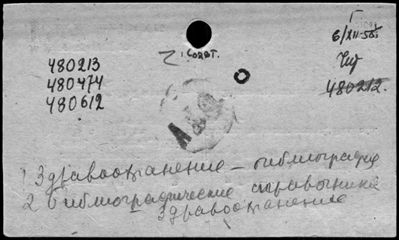 6/XII-58г.
480213
480474
480612
480212.
1 Здравоохранение – библиография
2 библиографические справочники
Здравоохранение